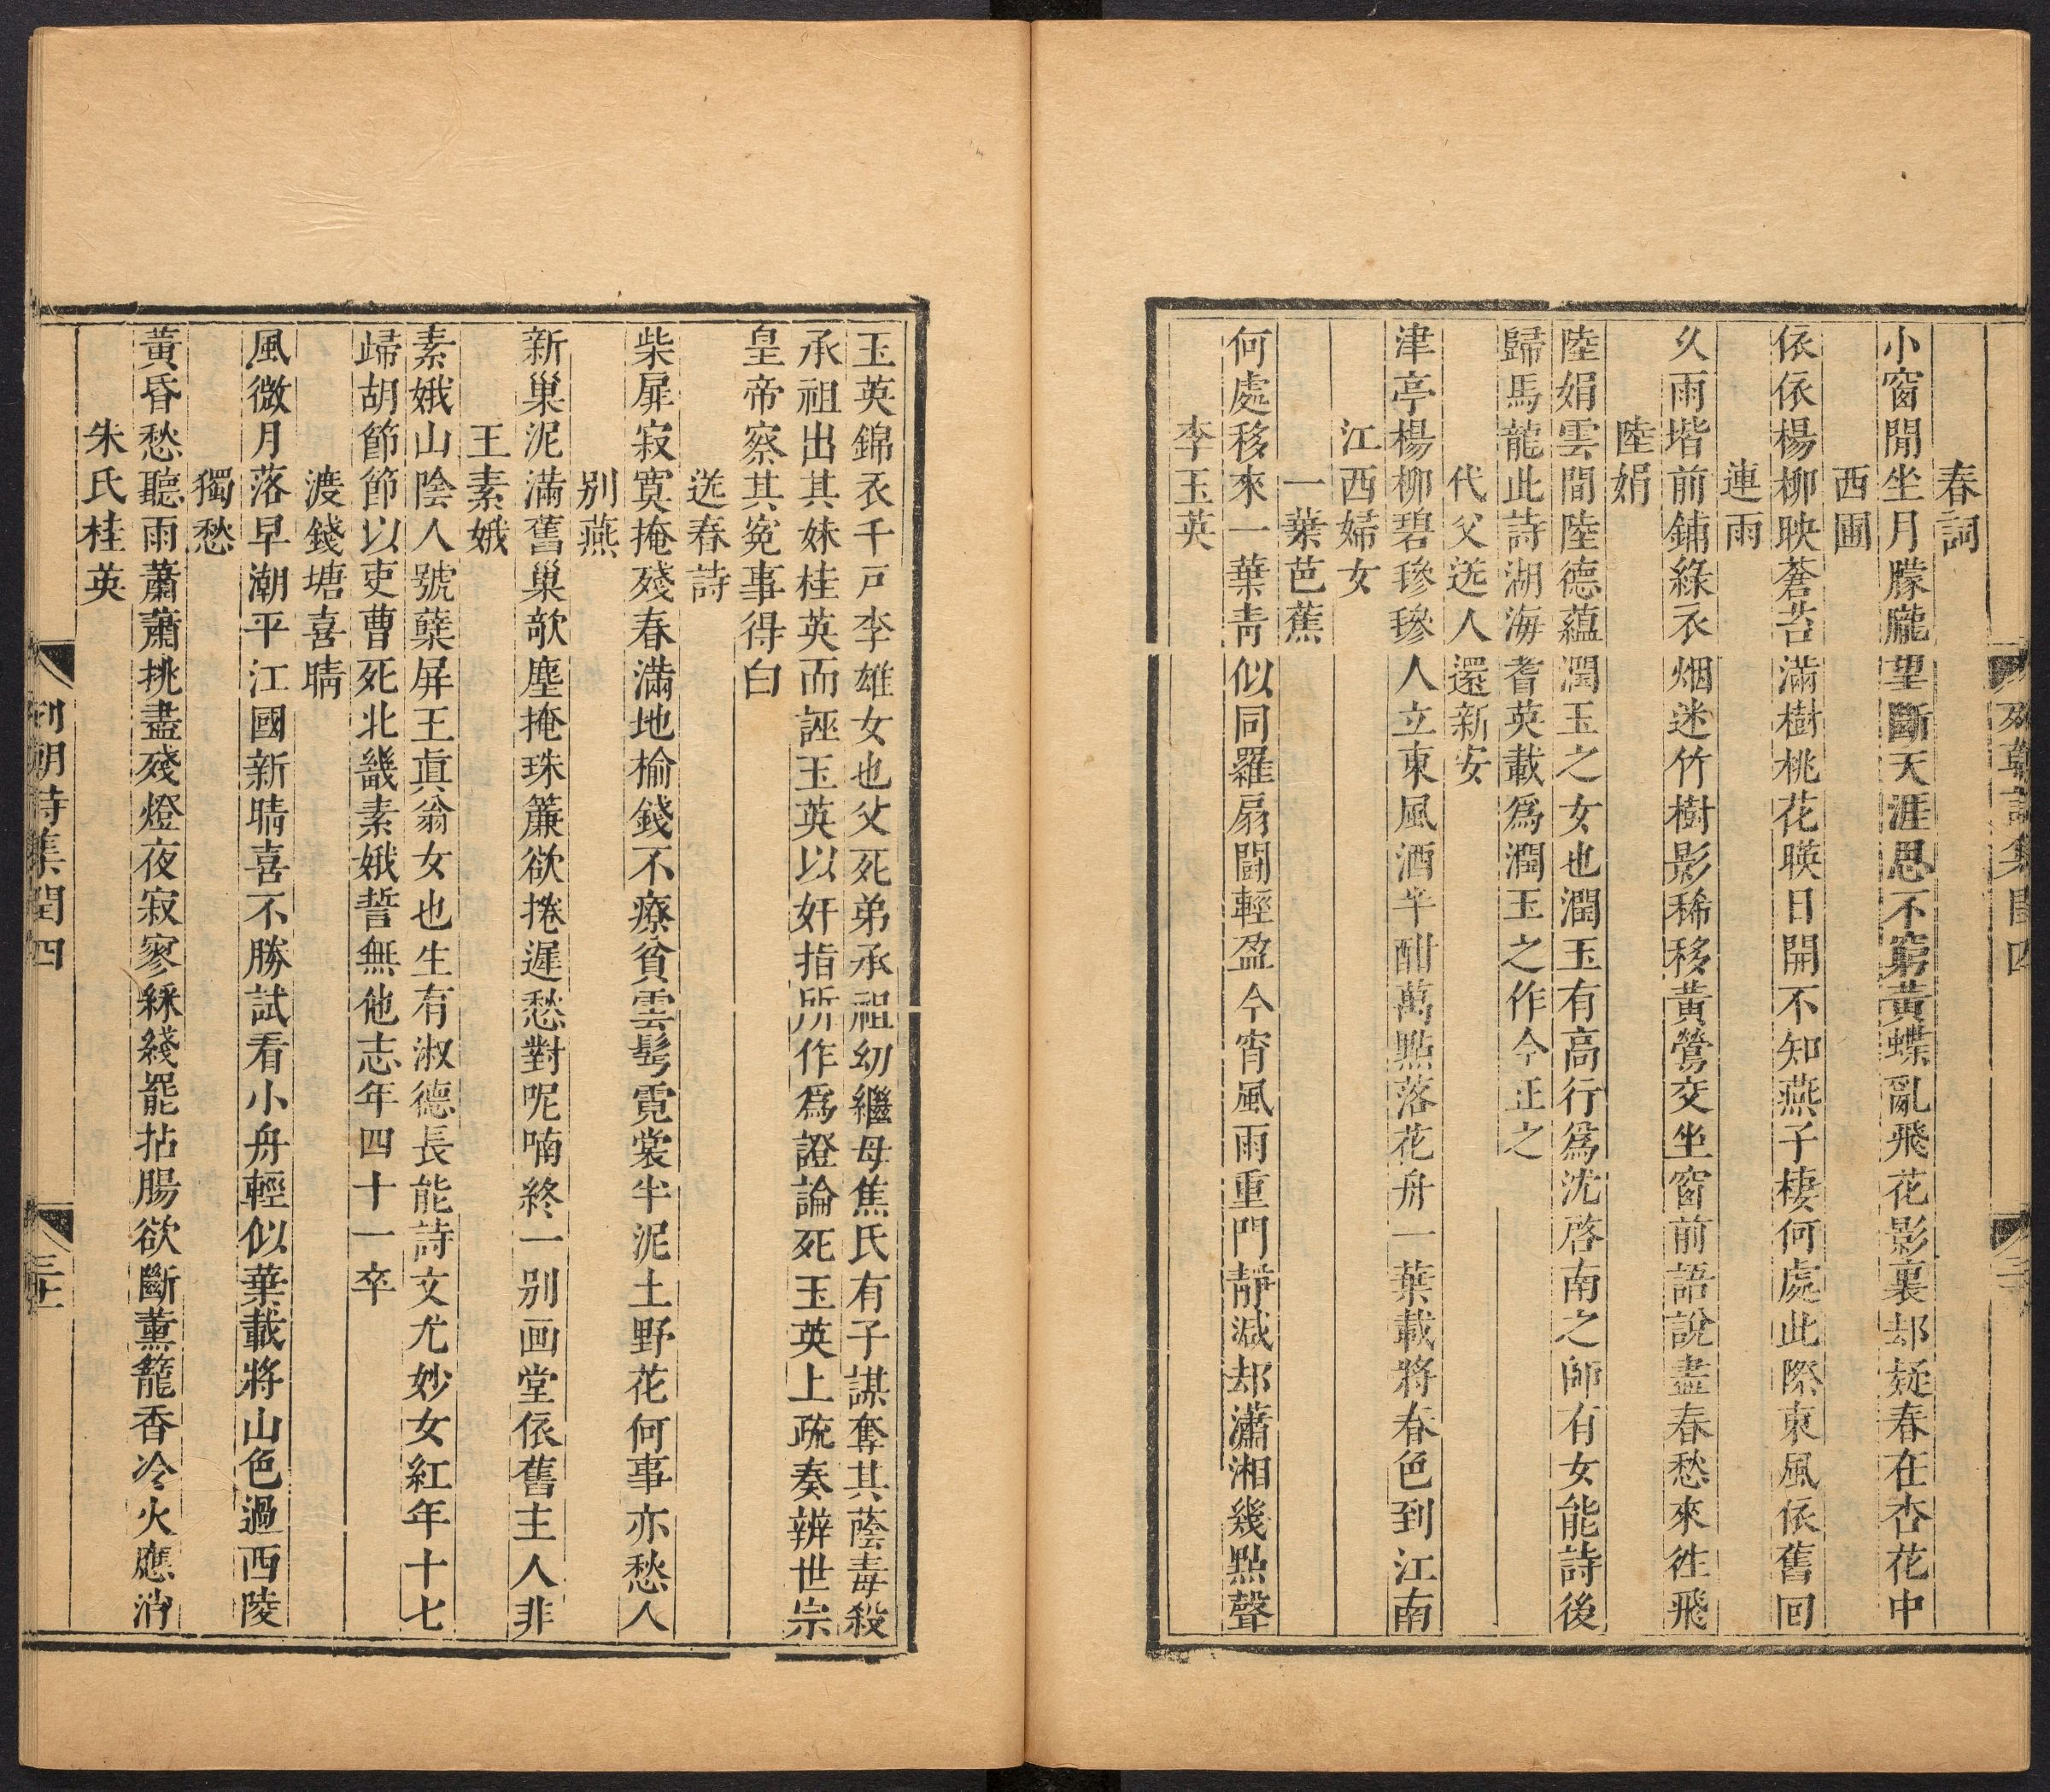 春詞
小窗閒坐月朦朧望斷天涯思不窮黃蝶亂飛花影裏却疑春在杏花中
西圃
依依楊柳映蒼苔滿樹桃花暎日開不知燕子棲何處此際東風依舊回
連雨
久雨堦前鋪綠衣烟迷竹樹影稀移黃鶯交坐窗前語說盡春愁來徃飛
陸娟
陸娟雲間陸德蘊潤玉之女也潤玉有高行爲沈啓南之師有女能詩後
歸馬龍此詩湖海耆英載爲潤玉之作今正之
代父送人還新安
津亭楊柳碧毿毿人立東風酒半酣萬點落花舟一葉載將春色到江南
江西婦女
一葉芭蕉
何處移來一葉靑似同羅扇鬪輕盈今宵風雨重門靜減却瀟湘幾點聲
李玉英
玉英錦衣千戶李雄女也父死弟承祖幼繼母焦氏有子謀奪其蔭毒殺
承祖出其妹桂英而誣玉英以奸指所作爲證論死玉英上疏奏辨世宗
皇帝察其寃事得白
送春詩
柴扉寂寞掩殘春滿地榆錢不療貧雲鬂霓裳半泥土野花何事亦愁人
别燕
新巢泥滿舊巢欹塵掩珠簾欲捲遲愁對呢喃終一别画堂依舊主人非
王素娥
素娥山陰人號蘗屏王眞翁女也生有淑德長能詩文尤妙女紅年十七
歸胡節節以吏曹死北畿素娥誓無他志年四十一卒
渡錢塘喜晴
風微月落早潮平江國新晴喜不勝試看小舟輕似葉載將山色過西陵
獨愁
黃昏愁聽雨蕭蕭挑盡殘燈夜寂寥綵綫罷拈腸欲斷薰籠香冷火應消
朱氏桂英
列朝詩集閏四